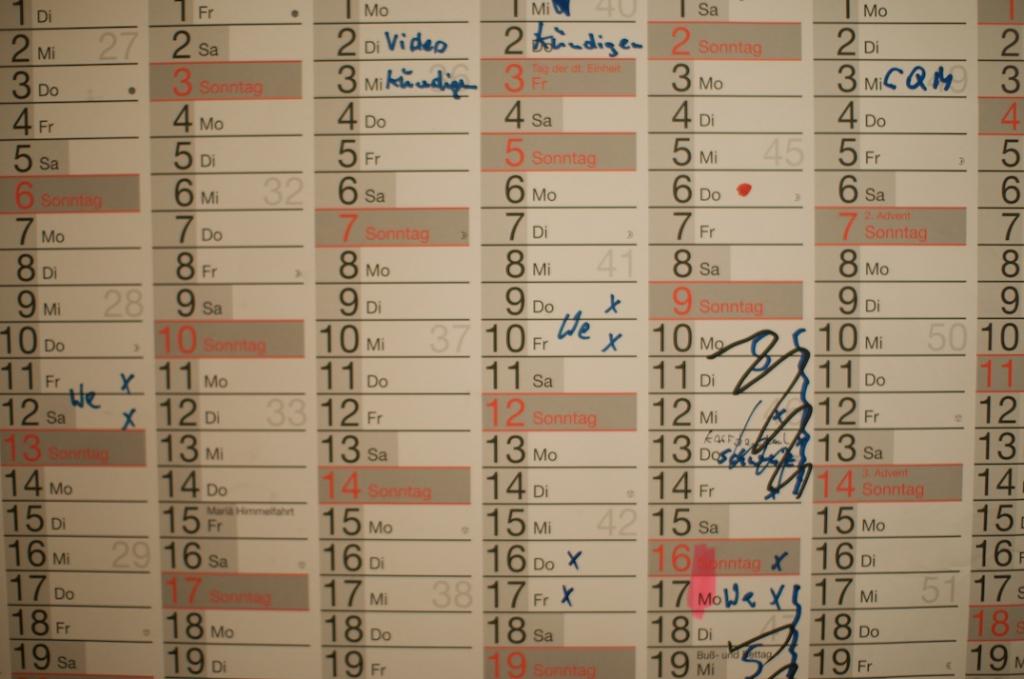 1 Di
2 Mi 27
3 Do
4 Fr
5 Sa
6 Sonntag
7 Mo
8 Di
9 Mi 28
10 Do
11 Fr x
We
12 Sa x
13 Sonntag
14 Mo
15 Di
16 Mi 29
17 Do
18 Fr
19 Sa
1 Fr
2 Sa
3 Sonntag
4 Mo
5 Di
6 Mi 32
7 Do
8 Fr
9 Sa
10 Sonntag
11 Mo
12 Di 33
13 Mi
14 Do
Mariä Himmelfahrt
15 Fr
16 Sa
17 Sonntag
18 Mo
19 Di
1 Mo
2 Di Video
3 Mi kündigen 36
4 Do
5 Fr
6 Sa
7 Sonntag
8 Mo
9 Di
10 Mi 37
11 Do
12 Fr
13 Sa
14 Sonntag
15 Mo
16 Di
17 Mi 38
18 Do
19 Fr
1 Mi 40
2 Do kündigen
Tag der dt. Einheit
3 Fr
4 Sa
5 Sonntag
6 Mo
7 Di
8 Mi 41
9 Do x
We
10 Fr x
11 Sa
12 Sonntag
13 Mo
14 Di
15 Mi 42
16 Do x
17 Fr x
18 Sa
19 Sonntag
1 Sa
2 Sonntag
3 Mo
4 Di
5 Mi 45
6 Do
7 Fr
8 Sa
9 Sonntag
10 Mo
11 Di
12 Mi x
13 Do
14 Fr x
15 Sa
16 Sonntag x
17 Mo We x
18 Di 47
Buß- und Bettag
19 Mi 5
1 Mo
2 Di
3 Mi CQM 49
4 Do
5 Fr
6 Sa
2. Advent
7 Sonntag
8 Mo
9 Di
10 Mi 50
11 Do
12 Fr
13 Sa
3. Advent
14 Sonntag
15 Mo
16 Di
17 Mi 51
18 Do
19 Fr
1
2
3
4
5
6
7
8
9
10
11
12
13
14
15
16
17
18
19